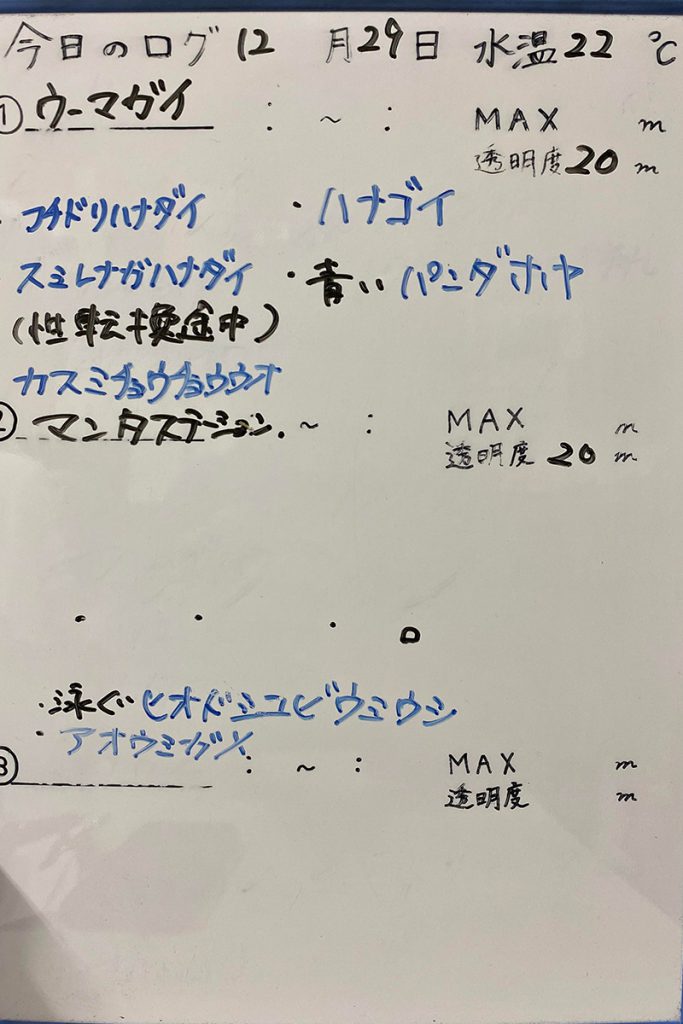 今日のログ 12 月29日 水温22 ℃
① ウーマガイ : ~ : MAX m
透明度20 m
・フチドリハナダイ ・ハナゴイ
スミレナガハナダイ ・青いパンダホヤ
(性転換途中)
カスミチョウチョウウオ
② マンタステーション. ~ : MAX m
透明度 20 m
・泳ぐヒオドシユビウミウシ
・アオウミガメ
③ : ~ : MAX m
透明度 m